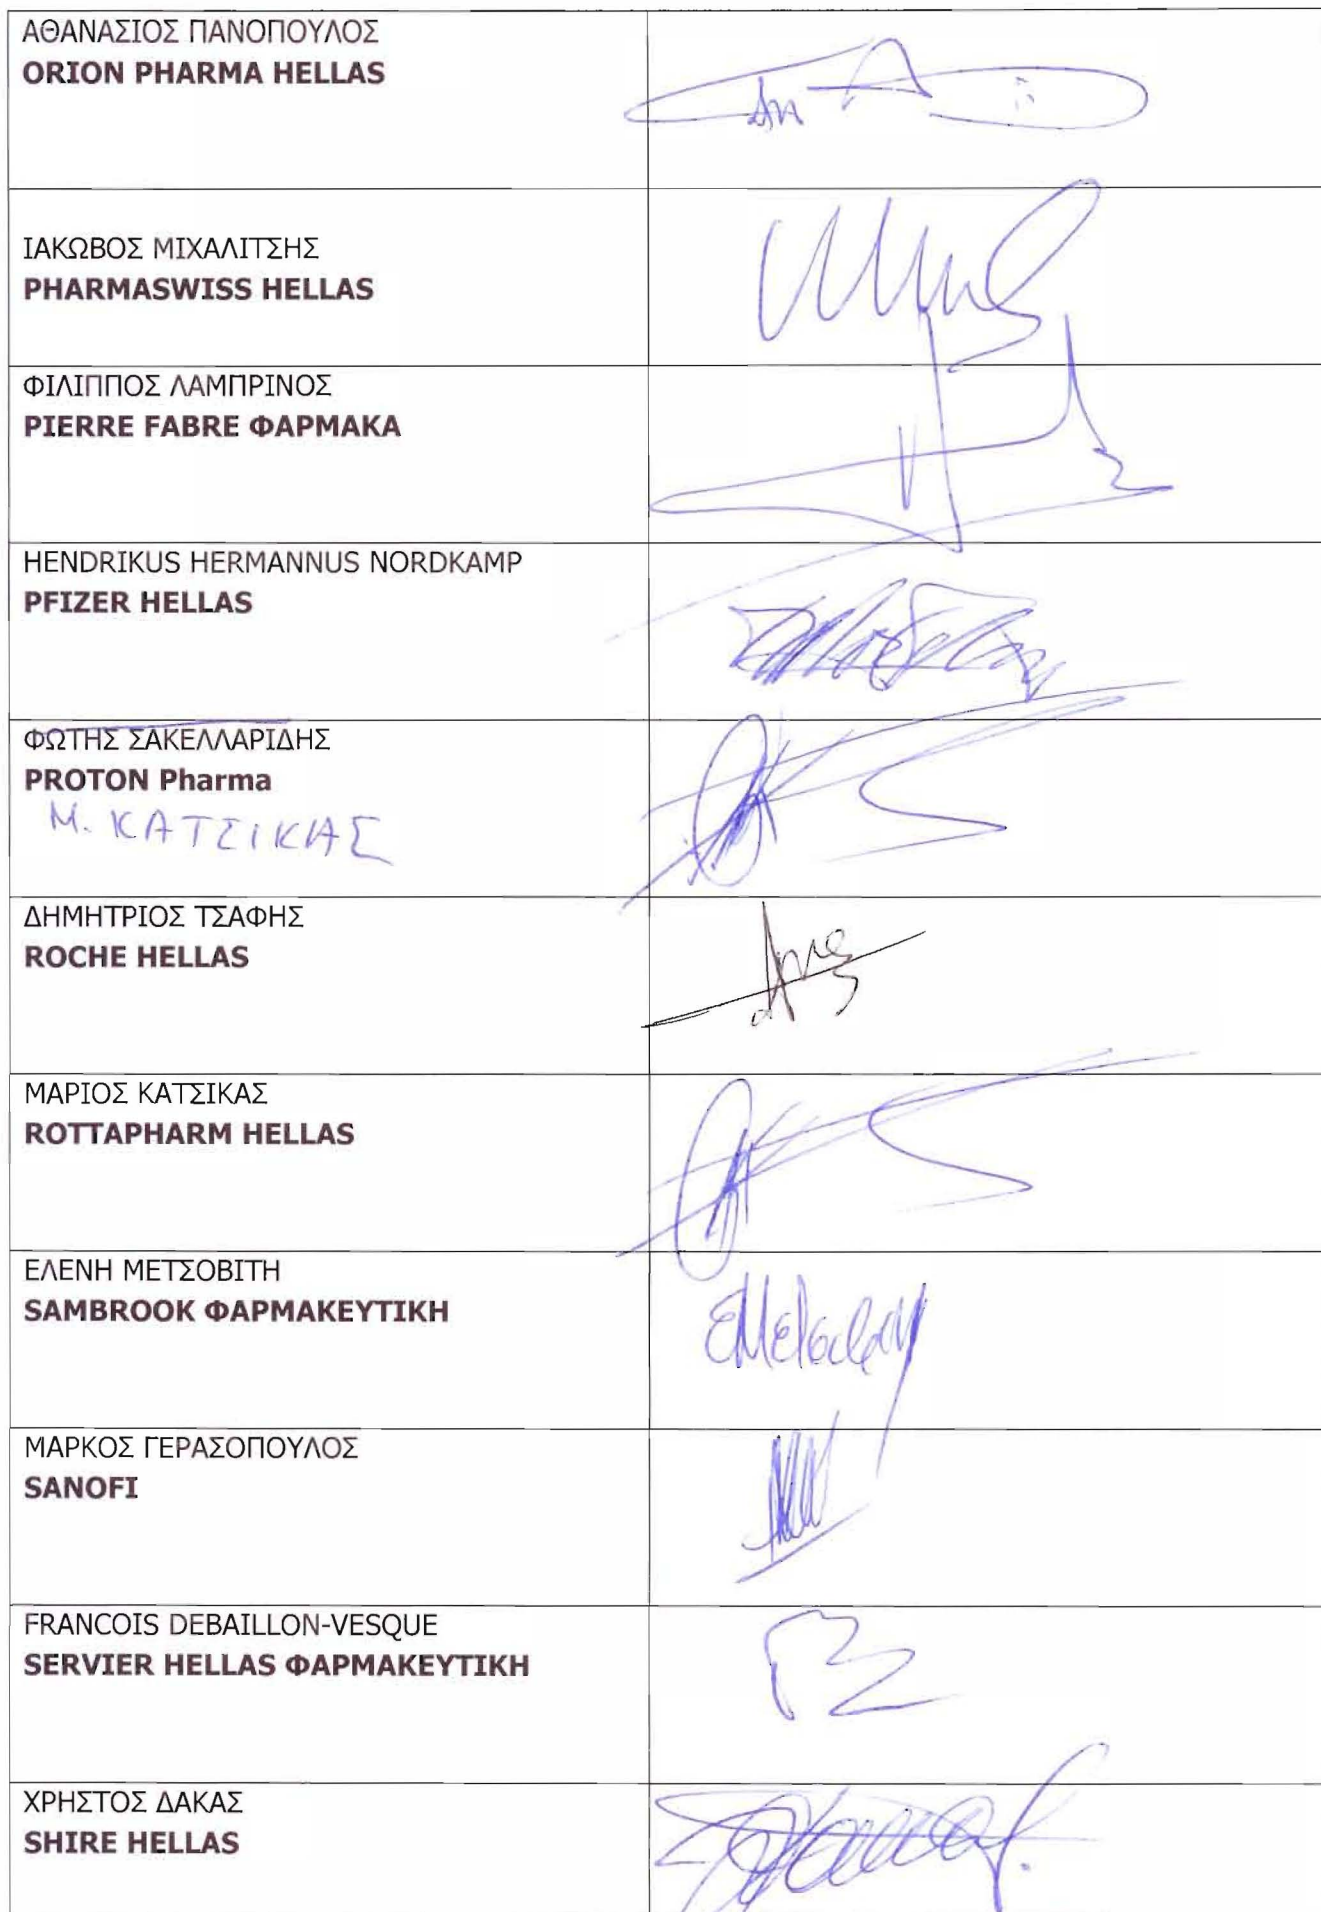 ΑΘΑΝΑΣΙΟΣ ΠΑΝΟΠΟΥΛΟΣ
ORION PHARMA HELLAS
ΙΑΚΩΒΟΣ ΜΙΧΑΛΙΤΣΗΣ
PHARMASWISS HELLAS
ΦΙΛΙΠΠΟΣ ΛΑΜΠΡΙΝΟΣ
PIERRE FABRE ΦΑΡΜΑΚΑ
HENDRIKUS HERMANNUS NORDKAMP
PFIZER HELLAS
ΦΩΤΗΣ ΣΑΚΕΛΛΑΡΙΔΗΣ
PROTON Pharma
Μ. ΚΑΤΣΙΚΑΣ
ΔΗΜΗΤΡΙΟΣ ΤΣΑΦΗΣ
ROCHE HELLAS
ΜΑΡΙΟΣ ΚΑΤΣΙΚΑΣ
ROTTAPHARM HELLAS
ΕΛΕΝΗ ΜΕΤΣΟΒΙΤΗ
SAMBROOK ΦΑΡΜΑΚΕΥΤΙΚΗ
ΜΑΡΚΟΣ ΓΕΡΑΣΟΠΟΥΛΟΣ
SANOFI
FRANCOIS DEBAILLON-VESQUE
SERVIER HELLAS ΦΑΡΜΑΚΕΥΤΙΚΗ
ΧΡΗΣΤΟΣ ΔΑΚΑΣ
SHIRE HELLAS